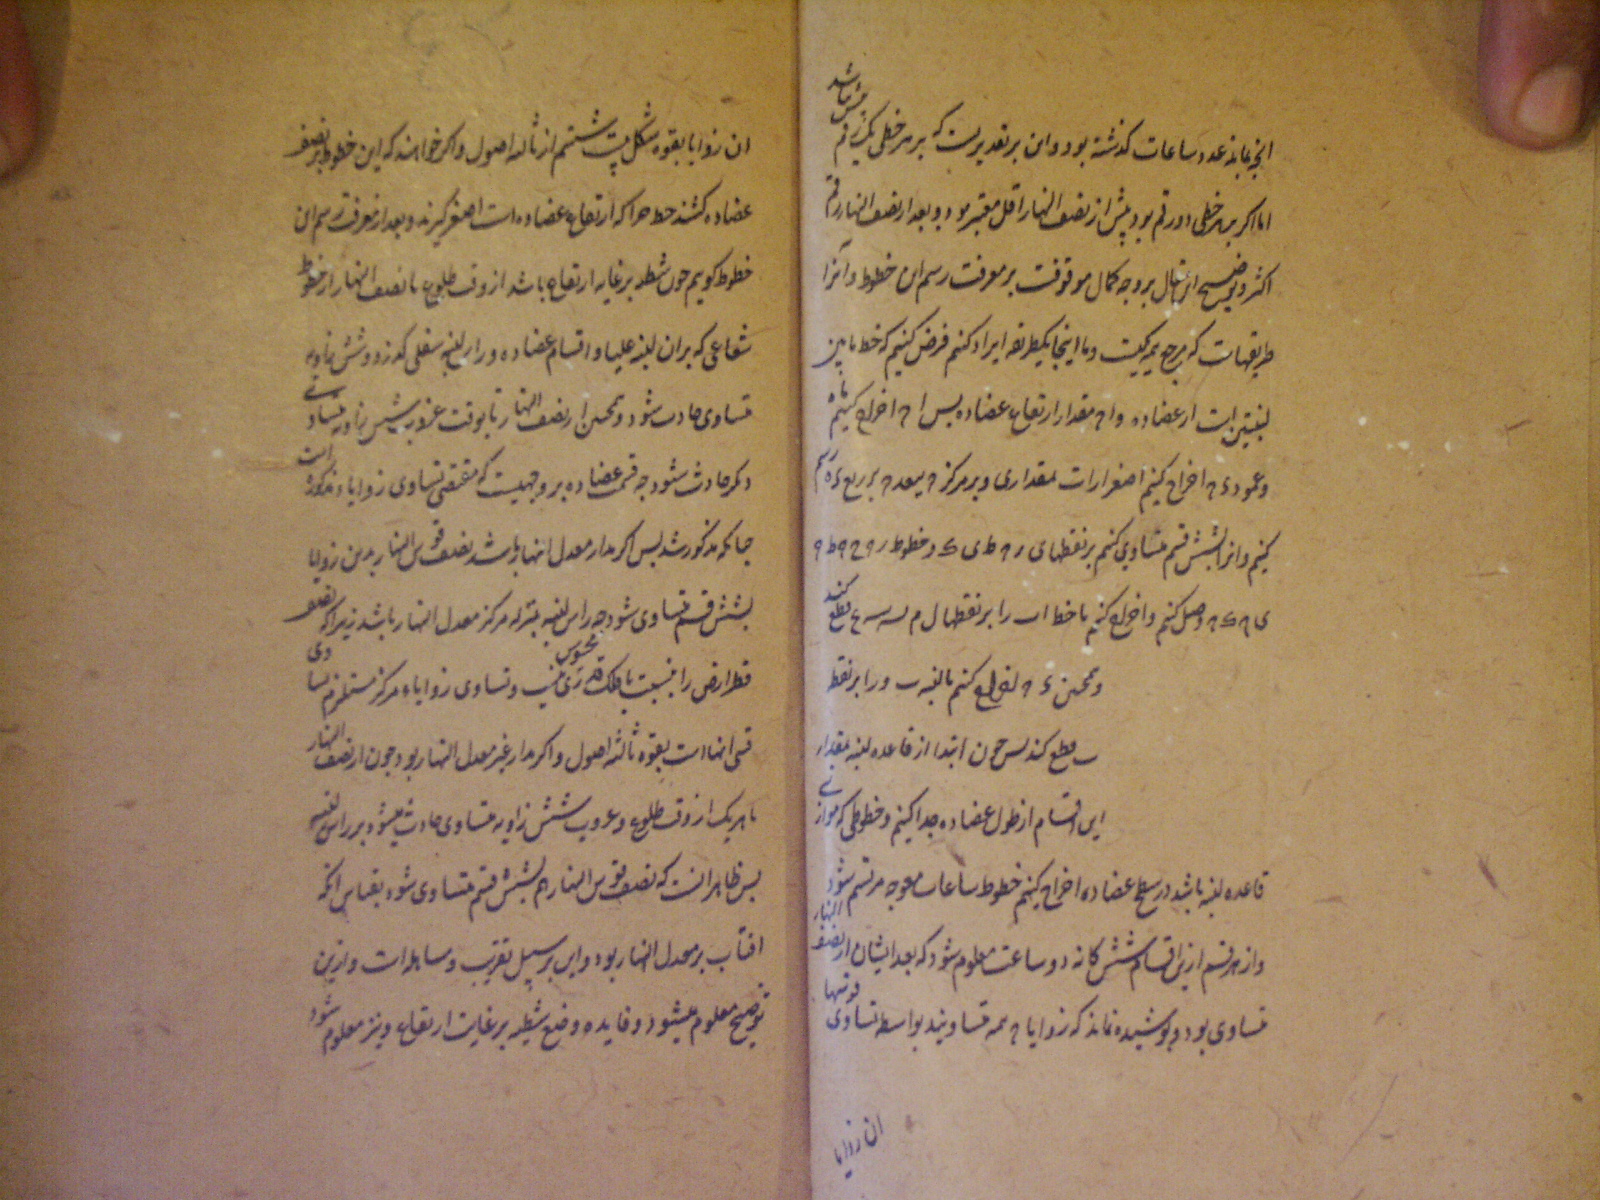 انچه بماند عدد ساعات گذشته بود و این بر تقدیریست که بر هر خطی یک رقم نقش باشد
اما اگر بر هر خطی دو رقم بود پیش از نصف النهار اقل معتبر بود و بعد از نصف النهار رقم
اکثر و توضیح این مقال بر وجه کمال موقوفست بر معرفت رسم این خطوط و آنرا
طریقهاست که مرجع همه یکیست و ما اینجا یکطریقه ایراد کنیم فرض کنیم که خط ما بین
لبنتین است از عضاده و ا ح مقدار ارتفاع عضاده پس ا ح اخراج کنیم تا ه
و عمود ء ح اخراج کنیم اصغر از ا ب بمقداری و بر مرکز ح ببعد ح ء ربع ء ه رسم
کنیم و انرا بشش قسم متساوی کنیم بر نقطهای ر ح ط ی ک و خطوط ر ح ح ح ط ح
ی ح ک ح وصل کنیم و اخراج کنیم تا خط ا ب را بر نقطهای ل م ن س ع قطع کند
و همچنین ء ح اخراج کنیم تا لبنه ب و را بر نقطه
ب قطع کند پس چون ابتدا از قاعده لبنه بمقدار
این اقسام از طول عضاده جدا کنیم و خطوطی که موازی
قاعده لبنه باشد در سطح عضاده اخراج کنیم خطوط ساعات معوجه مرتسم شود
و از هر قسم ازین اقسام ششگانه دو ساعت معلوم شود که بعد ایشان از نصف النهار
متساوی بود و پوشیده نماند که زوایا ح همه متساویند بواسطه تساوی قوسها
ان زوایا
ان زوایا بقوه شکل بیست ششم از ثالثه اصول و اکر خواهند که این خطوط بر نصف
عضاده کشند خط ح ا که ارتفاع عضاده است اصغر گیرند و بعد از معرفت رسم این
خطوط گوییم چون شظیه بر غایه ارتفاع باشد از وقت طلوع تا نصف النهار از خطوط
شعاعی که بران لبنه علیا و اقسام عضاده و راس لبنه سفلی گذرد و شش زاویه
متساوی حادث شود و همچنین از نصف النهار تا بوقت غروب شش زاویه متساوی
دیگر حادث شود چه قسمت عضاده بر وجهیست که مقتضی تساوی زوایاء مذکوره است
چنانکه مذکور شد پس اگر مدار معدل النهار باشد نصف قوس النهار بدین زوایا
بشش قسم متساوی شود چه راس لبنه بمنزله مرکز معدل النهار باشد زیرا که نصف
قطر ارض را نسبت با فلک قدری محسوس نیست و تساوی زوایاء مرکز مستلزم تساوی
قسی انهاست بقوه ثالثه اصول و اکر مدار غیر معدل النهار بود چون از نصف النهار
تا هر یک از وقت طلوع و غروب شش زاویه متساوی حادث میشود بر راس لبنه
پس ظاهر انست که نصف قوس النهار هم بشش قسم متساوی شود بقیاس انکه
افتاب بر معدل النهار بود و این بر سبیل تقریب و مساهله است و ازین
توضیح معلوم میشود و فایده وضع شظیه بر غایت ارتفاع و نیز معلوم شود